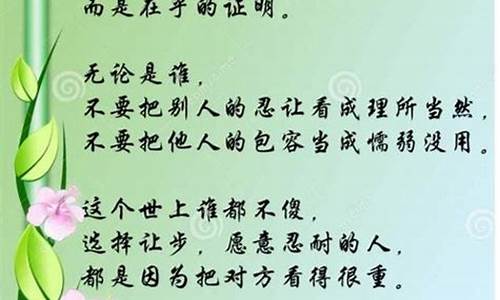 而是在乎的证明。
无论是谁，
不要把别人的忍让看成理所当然，
不要把他人的包容当成懦弱没用。
这个世上谁都不傻，
选择让步，愿意忍耐的人，
都是因为把对方看得很重。